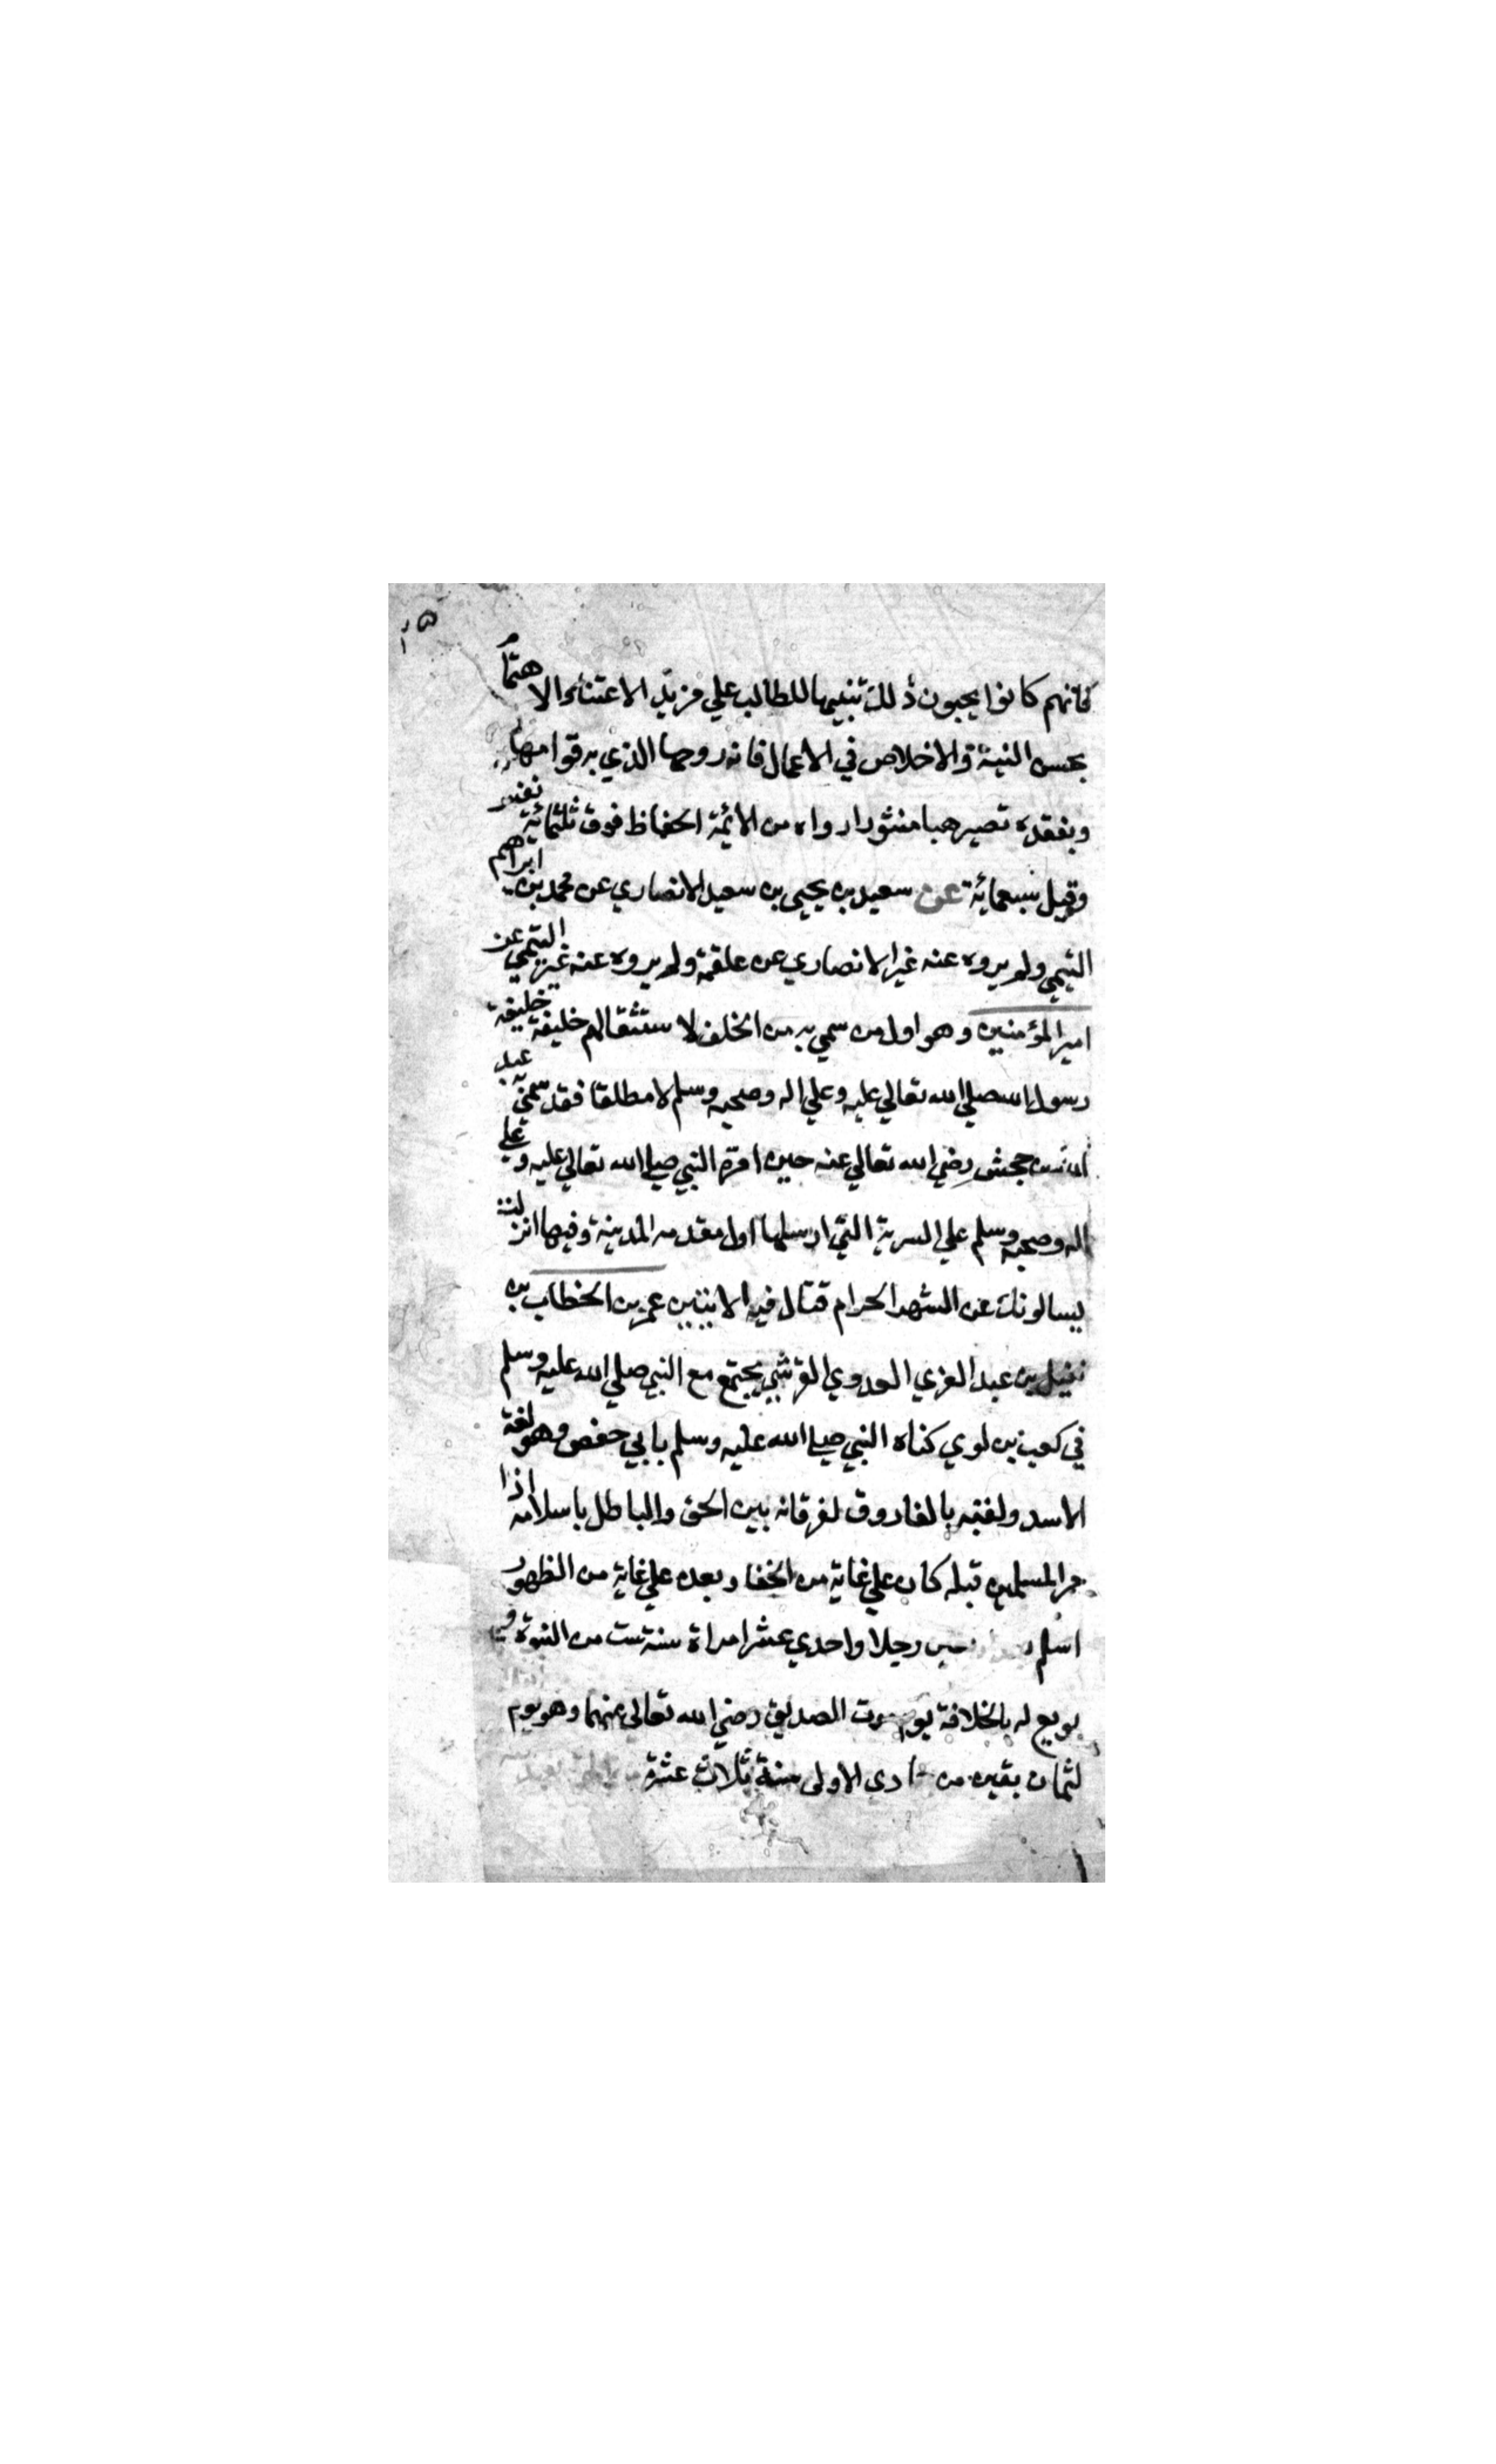 فانهم كانوا يحبون ذلك تنبيها للطالب علي مزيد الاعتناء والاهتمام
بحسن النية والاخلاص في الاعمال فانه روحها الذي به قوامها
وبفقده تصير هبا منثورا رواه من الائمة الحفاظ فوق ثلثمائة نفس
وقيل سبعمائة عن سعيد بن يحيي بن سعيد الانصاري عن محمد بن ابراهيم
التيمي ولم يروه عنه غير الانصاري عن علقمة ولم يروه عنه غير التيمي عن
امير المؤمنين وهو اول من سمي به من الخلف لاستثقالهم خليفة خليفة
رسول الله صلي الله تعالي عليه وعلي اله وصحبه وسلم لا مطلقا فقد سمي به عبد
الله بن جحش رضي الله تعالي عنه حين امره النبي صلي الله تعالي عليه وعلي
اله وصحبه وسلم علي السرية التي ارسلها اول مقدمه المدينة وفيها انزلت
يسالونك عن الشهر الحرام قتال فيه الايتين عمر بن الخطاب بن
نفيل بن عبد العزي العدوي القرشي يجتمع مع النبي صلي الله عليه وسلم
في كعب بن لوي كناه النبي صلي الله عليه وسلم بابي حفص وهو لغة
الاسد ولقبه بالفاروق لفرقانه بين الحق والباطل باسلامه اذا
مر المسلمين قبله كان علي غاية من الخفا وبعده علي غاية من الظهور
اسلم رجلا واحدي عشر امراة سنة ست من النبوة
بويع له بالخلافة يوم موت الصديق رضي الله تعالي عنهما وهو يوم
لثمان بقين من جمادى الاولى سنة ثلاث عشرة